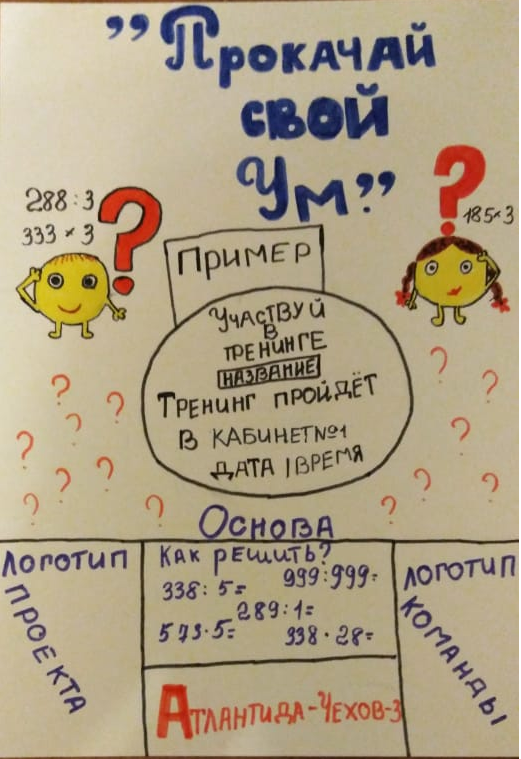 "Прокачай
свой
Ум"
288:3
333×3
?
?
185×3
Пример
Участвуй
в
тренинге
название
Тренинг пройдёт
в кабинет №1
дата | время
? ? ? ? ? ? ? ?
? ? ? ? ?
Основа
Логотип
проекта
Как решить?
338:5=
999:999=
289:1=
573·5=
938·28=
Логотип
команды
Атлантида-Чехов-3